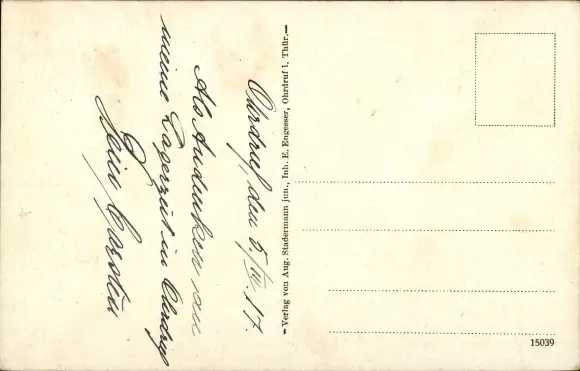 Ohrdruf, den 5./IV. 17.
Als Andenken an
meine Lagerzeit in Ohrdruf
Dein
– Verlag von Aug. Stadermann jun., Inh. E. Engesser, Ohrdruf i. Thür. –
15039